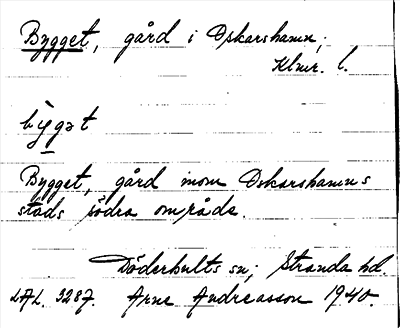 Bygget, gård i Oskarshamn;
Klmr. l.
bygət
Bygget, gård inom Oskarshamns
stads södra område.
Döderhults sn; Stranda hd.
LAL. 3287. Arne Andreasson 1940.